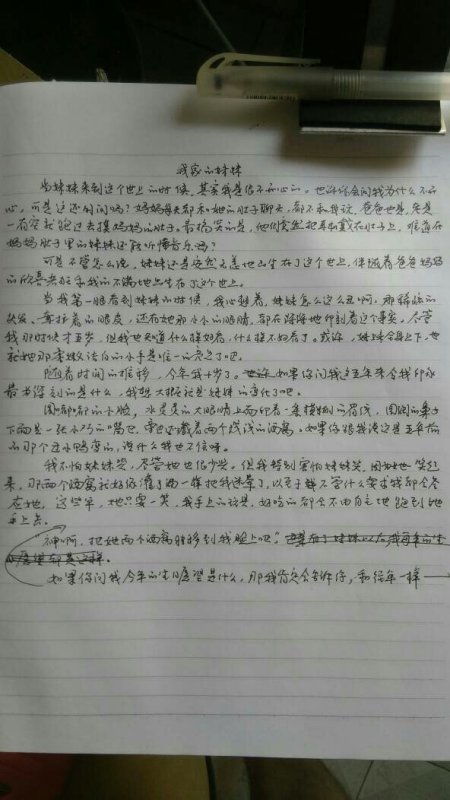 我家的妹妹
当妹妹来到这个世上的时候,其实我是很不开心的。也许你会问我为什么不开
心,可是这还用问吗?妈妈每天都和她的肚子聊天,都不和我说,爸爸也是,老是
一有空就跑过去摸妈妈的肚子。最搞笑的是,他们竟然把耳机戴在肚子上,难道在
妈妈肚子里的妹妹还能听懂音乐吗?
可是不管怎么说,妹妹还是安然无恙地出生在了这个世上,伴随着爸爸妈妈
的欣喜和我的不满地出生在了这个世上。
当我第一眼看到妹妹的时候,我心想着,妹妹怎么这么丑啊,那稀疏的
头发、耷拉着的眼皮,还有她那小小的眼睛,都在深深地印刻着这个事实。尽管
我那时候才五岁,但我也知道什么样好看,什么样不好看了。或许,妹妹全身上下,也
就她那零嫩洁白的小手是唯一的亮点了吧。
随着时间的推移,今年我十岁了。如果你问我这五年来令我印象
最为深刻的是什么,我想大概就是妹妹的变化了吧。
圆嘟嘟的小脸,水灵灵的大眼睛上面印着一条横横的眉线,圆圆的鼻子
下面是一张小巧的嘴巴,旁边还藏着两个浅浅的酒窝。如果你跟我说这是五年前
的那个丑小鸭变的,说什么我也不信呀。
我不怕妹妹哭,尽管她也很少哭。但我特别害怕妹妹笑,因为她一笑起
来,那两个酒窝就好似灌了酒一样把我迷晕了,以至于无论什么要求我都会答
应她,这些年,她只要一笑,我手上的玩具,好吃的都会不由自主地跑到她
手上去。
神啊,把她两个酒窝转移到我脸上吧!
如果你问我今年的生日愿望是什么,那我肯定会告诉你,和往年一样——